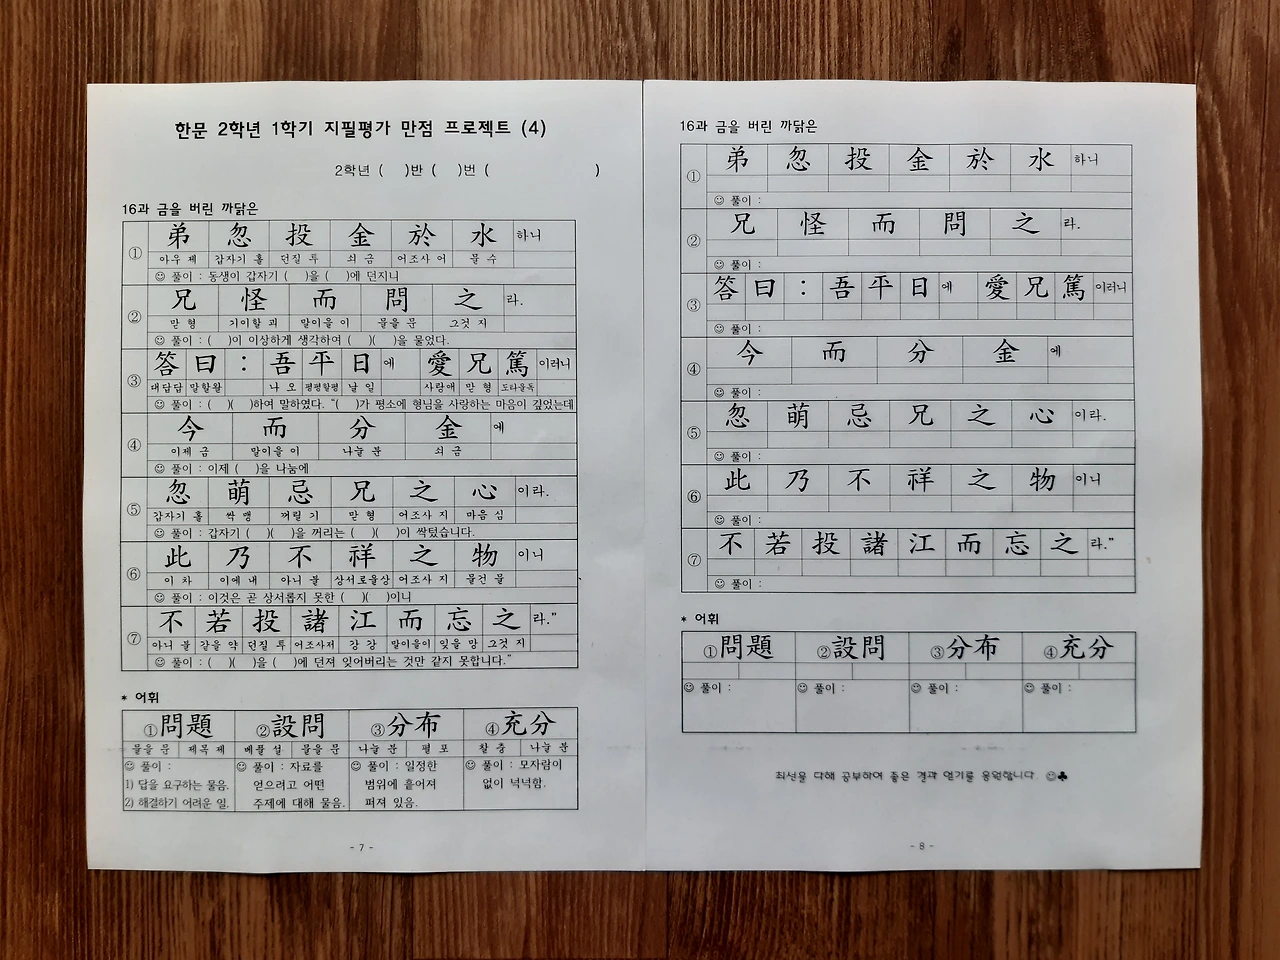 한문 2학년 1학기 지필평가 만점 프로젝트 (4)
2학년 (    )반 (    )번 (                    )
16과 금을 버린 까닭은
① 弟 忽 投 金 於 水 하니
아우 제 갑자기 홀 던질 투 쇠 금 어조사 어 물 수
☺ 풀이 : 동생이 갑자기 (    )을 (    )에 던지니
② 兄 怪 而 問 之 라.
맏 형 기이할 괴 말이을 이 물을 문 그것 지
☺ 풀이 : (    )이 이상하게 생각하여 (    )(    )을 물었다.
③ 答 曰 : 吾 平 日 에 愛 兄 篤 이러니
대답답 말할왈 나 오 평평할평 날 일 사랑애 맏 형 도타울독
☺ 풀이 : (    )(    )하여 말하였다. "(    )가 평소에 형님을 사랑하는 마음이 깊었는데
④ 今 而 分 金 에
이제 금 말이을 이 나눌 분 쇠 금
☺ 풀이 : 이제 (    )을 나눔에
⑤ 忽 萌 忌 兄 之 心 이라.
갑자기 홀 싹 맹 꺼릴 기 맏 형 어조사 지 마음 심
☺ 풀이 : 갑자기 (    )(    )을 꺼리는 (    )(    )이 싹텄습니다.
⑥ 此 乃 不 祥 之 物 이니
이 차 이에 내 아니 불 상서로울상 어조사 지 물건 물
☺ 풀이 : 이것은 곧 상서롭지 못한 (    )(    )이니
⑦ 不 若 投 諸 江 而 忘 之 라."
아니 불 같을 약 던질 투 어조사저 강 강 말이을이 잊을 망 그것 지
☺ 풀이 : (    )(    )을 (    )에 던져 잊어버리는 것만 같지 못합니다."
* 어휘
①問題 ②設問 ③分布 ④充分
물을 문 제목 제 베풀 설 물을 문 나눌 분 펼 포 찰 충 나눌 분
☺ 풀이 : ☺ 풀이 : 자료를 ☺ 풀이 : 일정한 ☺ 풀이 : 모자람이
1) 답을 요구하는 물음. 얻으려고 어떤 범위에 흩어져 없이 넉넉함.
2) 해결하기 어려운 일. 주제에 대해 물음. 퍼져 있음.
- 7 -
16과 금을 버린 까닭은
① 弟 忽 投 金 於 水 하니
☺ 풀이 :
② 兄 怪 而 問 之 라.
☺ 풀이 :
③ 答 曰 : 吾 平 日 에 愛 兄 篤 이러니
☺ 풀이 :
④ 今 而 分 金 에
☺ 풀이 :
⑤ 忽 萌 忌 兄 之 心 이라.
☺ 풀이 :
⑥ 此 乃 不 祥 之 物 이니
☺ 풀이 :
⑦ 不 若 投 諸 江 而 忘 之 라."
☺ 풀이 :
* 어휘
①問題 ②設問 ③分布 ④充分
☺ 풀이 : ☺ 풀이 : ☺ 풀이 : ☺ 풀이 :
최선을 다해 공부하여 좋은 결과 얻기를 응원합니다. ☺♣
- 8 -